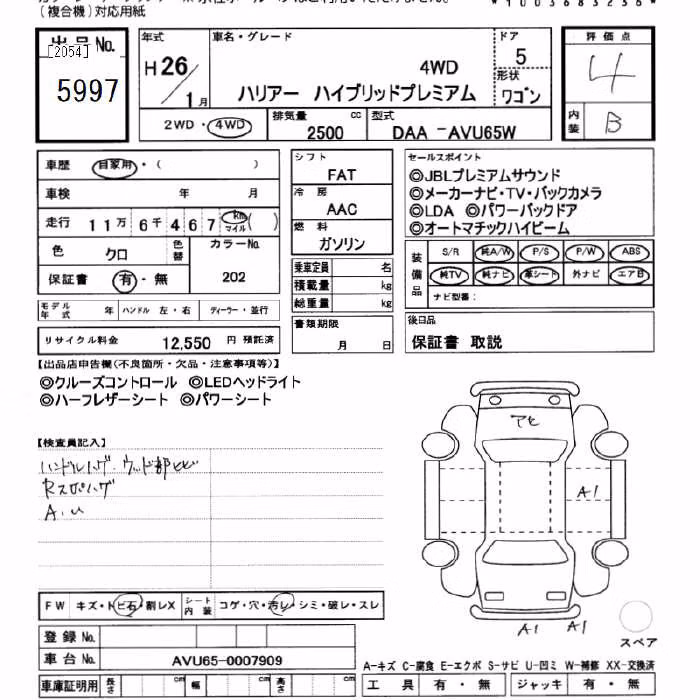 (複合機)対応用紙
*1003683236*
出品No.
[2054]
5997
年式
H26/1月
車名・グレード
4WD
ハリアー ハイブリッドプレミアム
ドア
5
形状
ワゴン
評価点
4
内装
B
2WD・4WD
排気量
2500
cc
型式
DAA-AVU65W
車歴
自家用・( )
車検
年 月
走行
11万6千467 km マイル ( )
色
クロ
色替
カラーNo.
202
保証書
有・無
シフト
FAT
冷房
AAC
燃料
ガソリン
乗車定員 名
積載量 kg
総重量 kg
書類期限
月 日
セールスポイント
◎JBLプレミアムサウンド
◎メーカーナビ・TV・バックカメラ
◎LDA ◎パワーバックドア
◎オートマチックハイビーム
装備品
S/R 純A/W P/S P/W ABS
純TV 純ナビ 革シート 外ナビ エアB
ナビ型番:
モデル年式 年 ハンドル 左・右 ディーラー・並行
リサイクル料金 12,550 円 預託済
後日品
保証書 取説
【出品店申告欄(不良箇所・欠品・注意事項等)】
◎クルーズコントロール ◎LEDヘッドライト
◎ハーフレザーシート ◎パワーシート
【検査員記入】
ハンドルハゲ・ウッド部ヒビ
Rスポハゲ
A.U
アヒ
A1
A1 A1
スペア
FW キズ・トビ石・割レX
シート内装 コゲ・穴・汚レ・シミ・破レ・スレ
登録No.
車台No. AVU65-0007909
車庫証明用 長さ cm 幅 cm 高さ cm
A-キズ C-腐食 E-エクボ S-サビ U-凹ミ W-補修 XX-交換済
工具 有・無 ジャッキ 有・無